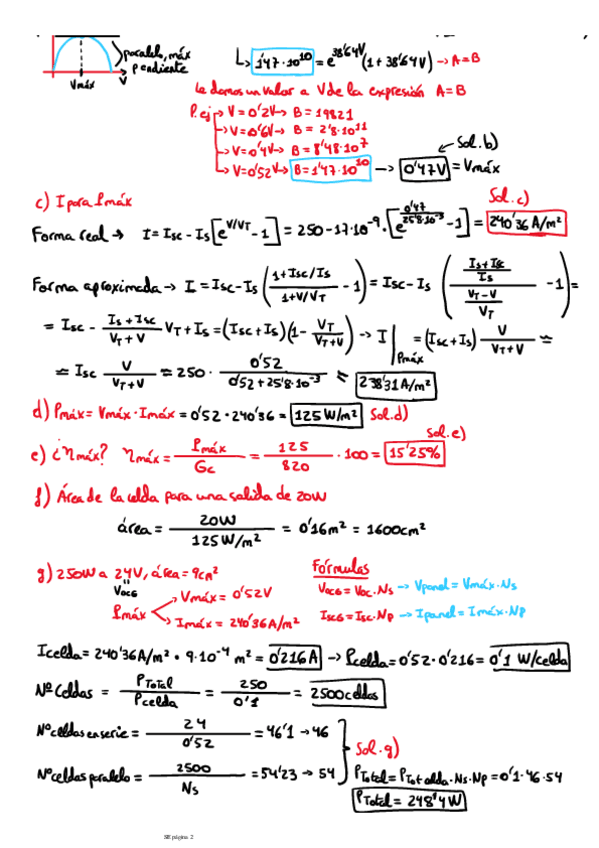 paralelo, máx
pendiente
Vmáx
V
↳ 1'47·10^10 = e^38'64V (1 + 38'64V) → A=B
Le damos un valor a V de la expresión A=B
P.ej → V=0'2V → B = 19821
→ V=0'6V → B = 2'8·10^11
→ V=0'4V → B = 8'48·10^7
→ V=0'52V → B=1'47·10^10 → 0'47V = Vmáx
Sol.b)
c) I para Pmáx
Sol.c)
Forma real → I = Isc - Is [e^(V/VT) - 1] = 250 - 17·10^-9 · [e^(0'47/25'8·10^-3) - 1] = 240'36 A/m²
Forma aproximada → I = Isc - Is ((1+Isc/Is)/(1+V/VT) - 1) = Isc - Is (((Is+Isc)/Is)/((VT-V)/VT) - 1) =
= Isc - (Is+Isc)/(VT+V) VT + Is = (Isc+Is)(1 - VT/(VT+V)) → I|Pmáx = (Isc+Is) V/(VT+V) ≃
≃ Isc V/(VT+V) = 250 · 0'52/(0'52+25'8·10^-3) ≈ 238'31 A/m²
d) Pmáx = Vmáx · Imáx = 0'52 · 240'36 = 125 W/m² Sol.d)
Sol.e)
e) ¿ηmáx? ηmáx = Pmáx/Gc = 125/820 · 100 = 15'25%
f) Área de la celda para una salida de 20W
área = 20W/(125 W/m²) = 0'16m² = 1600cm²
g) 250W a 24V, área = 9cm²
VOCG
Pmáx
Vmáx = 0'52V
Imáx = 240'36A/m²
Fórmulas
VOCG = Voc·Ns → Vpanel = Vmáx·Ns
ISCG = Isc·Np → Ipanel = Imáx·Np
Icelda = 240'36A/m² · 9·10^-4 m² = 0'216A → Pcelda = 0'52·0'216 = 0'1 W/celda
Nº Celdas = PTotal/Pcelda = 250/0'1 = 2500celdas
Nº celdas en serie = 24/0'52 = 46'1 → 46
Sol.g)
Nº celdas paralelo = 2500/Ns = 54'23 → 54
PTotal = PTot celda·Ns·Np = 0'1·46·54
PTotal = 248'4W
SE página 2